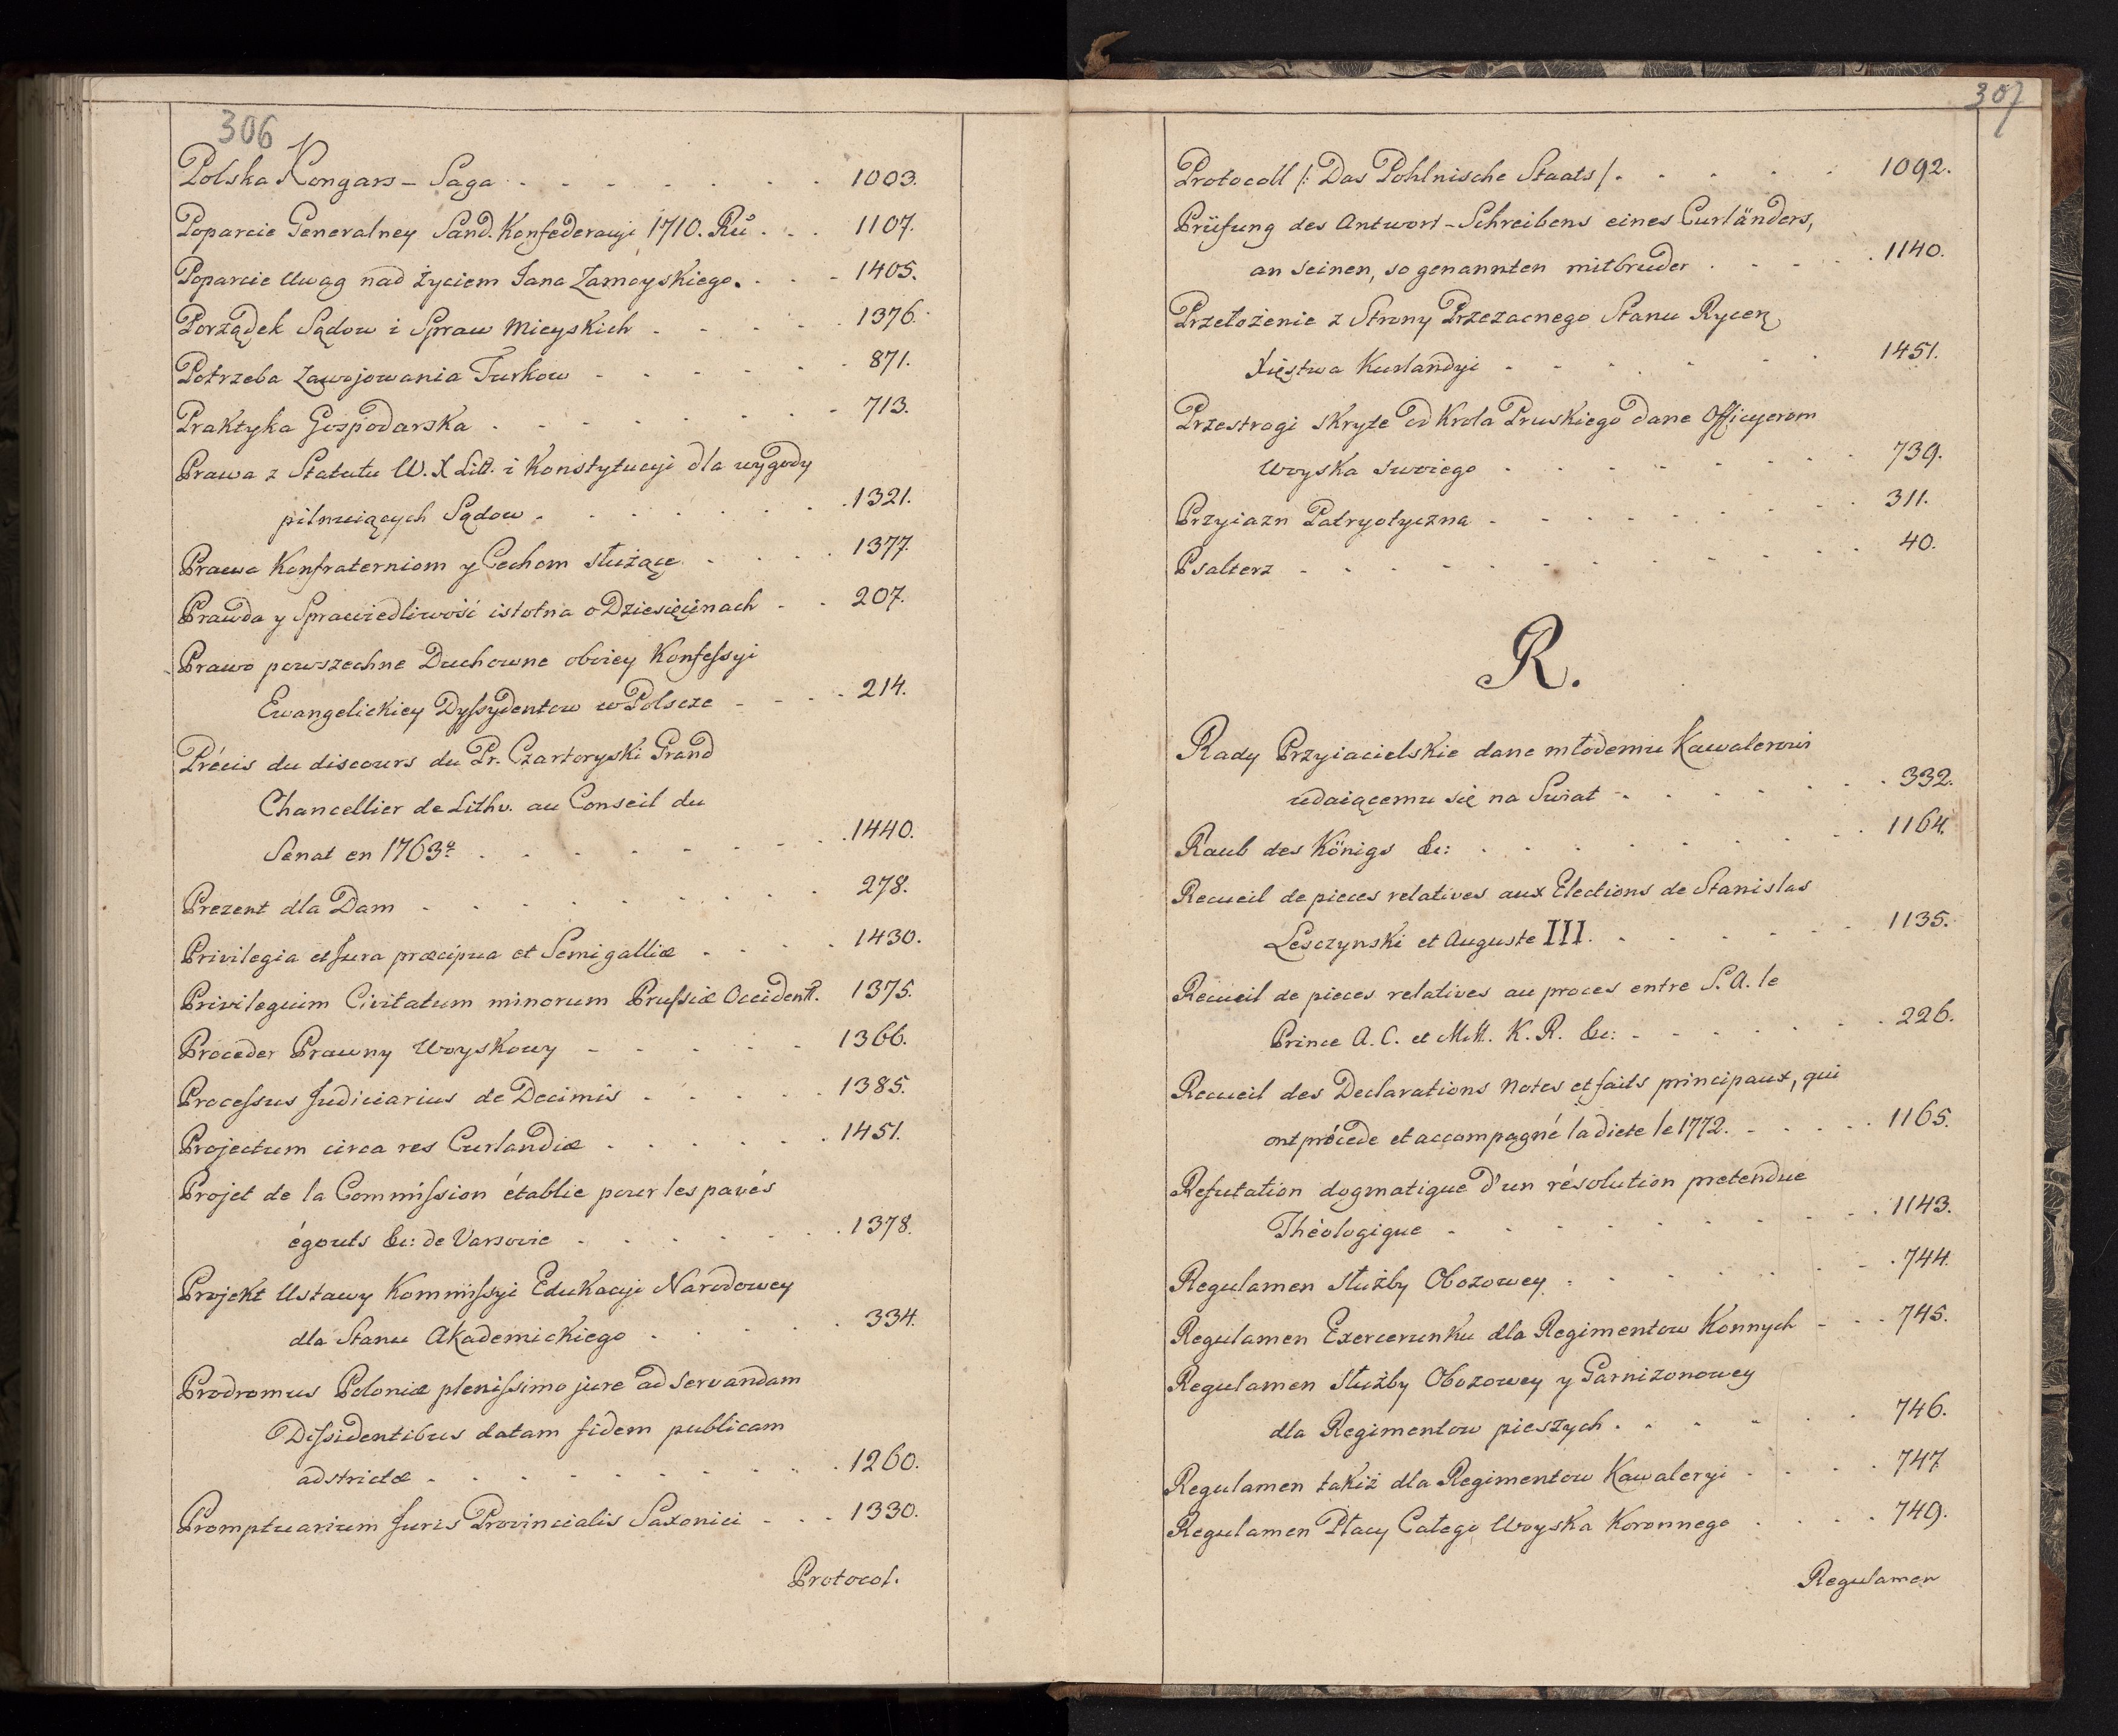 306
Polska Kongars - Saga . . . . . . . 1003.
Poparcie Generalney Sand. Konfederacyi 1710. Ru . . . 1107.
Poparcie Uwag nad życiem Jana Zamoyskiego. . . . 1405.
Porządek Sądow i Spraw Mieyskich . . . . . 1376.
Potrzeba Zawojowania Turkow . . . . . . 871.
Praktyka Gospodarska . . . . . . . 713.
Prawa z Statutu W. X Litt. i Konstytucyi dla wygody
pilnuiących Sądow . . . . . . . 1321.
Prawo Konfraterniom y Cechom służące . . . . 1377.
Prawda y Sprawiedliwość istotna o Dziesięcinach . . 207.
Prawo powszechne Duchowne oboiey Konfessyi
Ewangelickiey Dyssydentow w Polscze . . . 214.
Précis du discours du Pr. Czartoryski Grand
Chancellier de Lithv. au Conseil du
Senat en 1763º . . . . . . . . 1440.
Prezent dla Dam . . . . . . . . 278.
Privilegia et Jura præcipua et Semigalliæ . . . . 1430.
Privileguim Civitatum minorum Prussiæ Occident. 1375.
Proceder Prawny Woyskowy . . . . . 1366.
Processus Judiciarius de Decimis . . . . . 1385.
Projectum circa res Curlandiæ . . . . . 1451.
Projet de la Commission établie pour les pavés
égouts &c: de Varsovie . . . . . . 1378.
Projekt Ustawy Kommissyi Edukacyi Narodowey
dla Stanu Akademickiego . . . . . 334.
Prodromus Poloniæ plenissimo jure ad servandam
Dissidentibus datam fidem publicam
adstrictæ . . . . . . . . . 1260.
Promptuarium Juris Provincialis Saxonici . . . 1330.
Protocol.
307
Protocoll /: Das Pohlnische Staats / . . . . . 1092.
Prüfung des Antwort - Schreibens eines Curländers,
an seinen, so genannten mitbruder . . . . . 1140.
Przełożenie z Strony Przezacnego Stanu Rycer
Xięstwa Kurlandyi . . . . . . 1451.
Przestrogi skryte od Krola Pruskiego dane Officyerom
Woyska swoiego . . . . . . . . 739.
Przyiazn Patryotyczna . . . . . . . . 311.
Psalterz . . . . . . . . . . . 40.
R.
Rady Przyiacielskie dane młodemu Kawalerowi
udaiącemu się na Swiat . . . . . . . 332.
Raub des Königs &c: . . . . . . . . 1164.
Recueil de pieces relatives aux Elections de Stanislas
Lesczynski et Auguste III. . . . . . . 1135.
Recueil de pieces relatives au proces entre S. A. le
Prince A. C. et M.M. K. R. &c: . . . . . . . 226.
Recueil des Declarations Notes et faits principaux, qui
ont prócede et accompagné la diete le 1772. . . . . . 1165.
Refutation dogmatique d'un résolution pretendue
Théologique . . . . . . . . . 1143.
Regulamen służby Obozowey . . . . . . . 744.
Regulamen Exercerunku dla Regimentow Konnych . . . 745.
Regulamen Służby Obozowey y Garnizonowey
dla Regimentow pieszych . . . . . . 746.
Regulamen takiż dla Regimentow Kawaleryi . . . . 747
Regulamen Płacy Całego Woyska Koronnego . . . . 749.
Regulamen